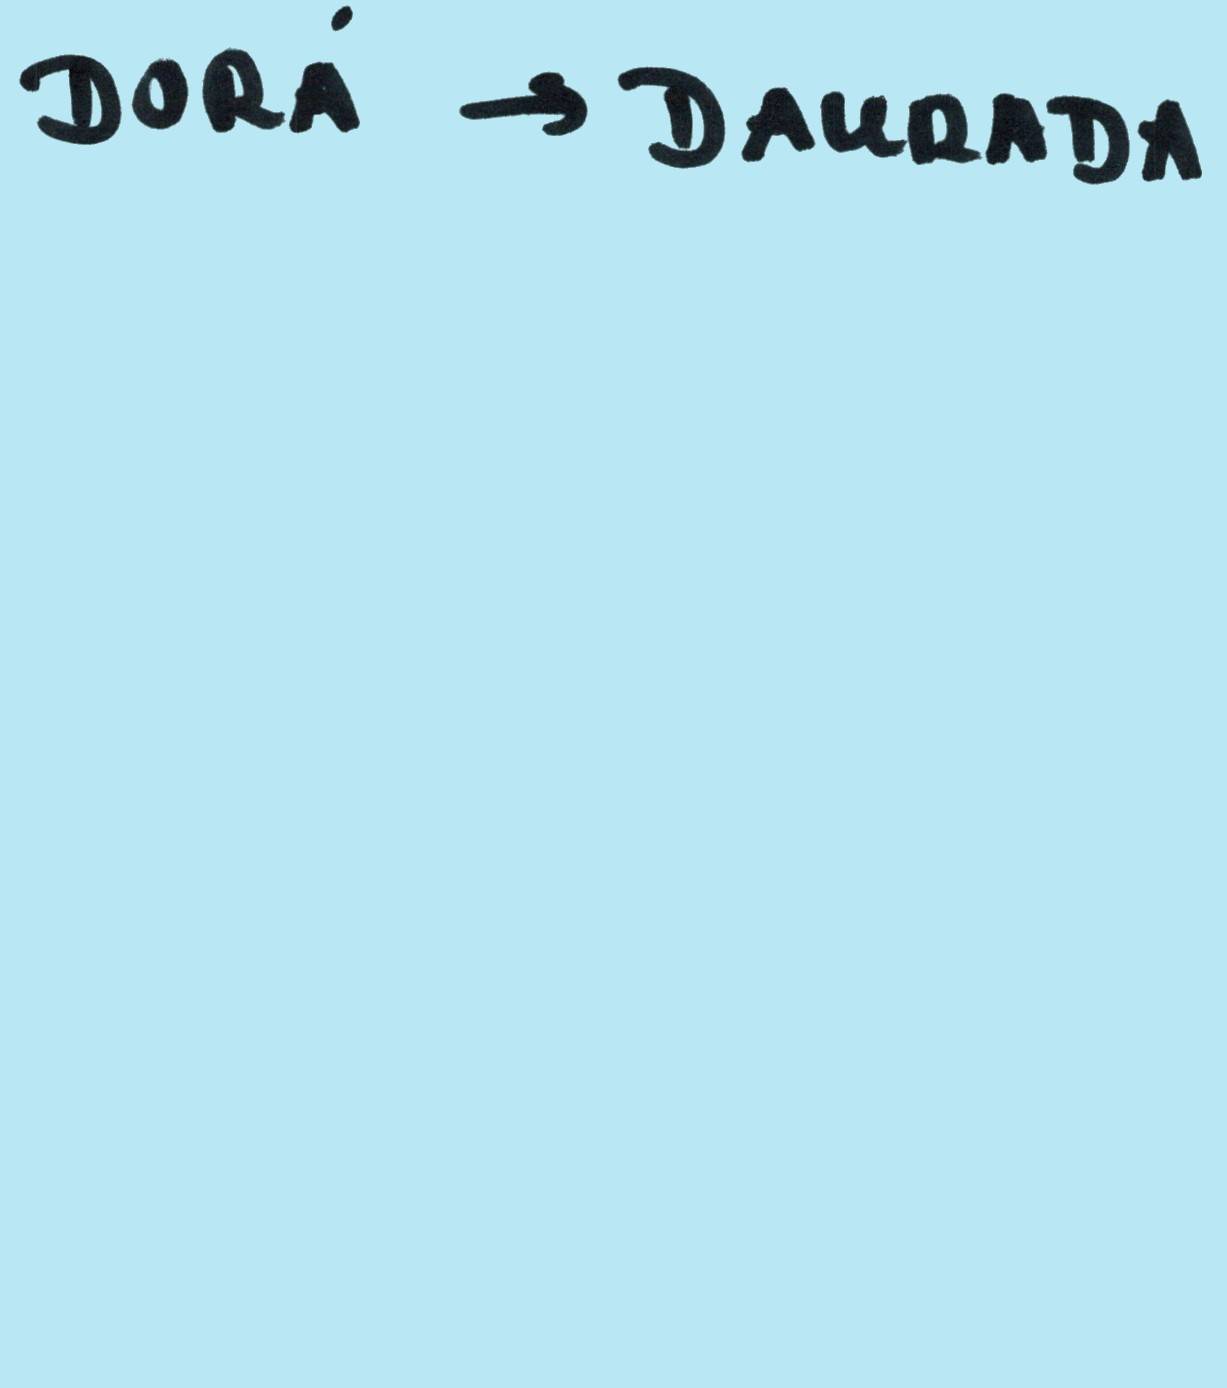 DORÁ → DAURADA